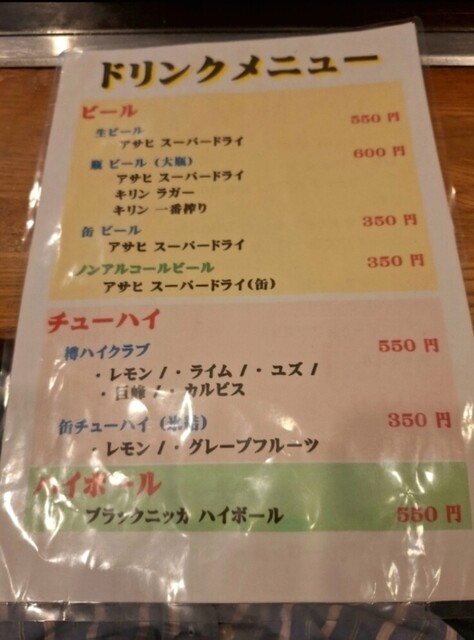 ドリンクメニュー
ビール
生ビール 550 円
アサヒ スーパードライ
瓶 ビール (大瓶) 600 円
アサヒ スーパードライ
キリン ラガー
キリン 一番搾り
缶 ビール 350 円
アサヒ スーパードライ
ノンアルコールビール 350 円
アサヒ スーパードライ(缶)
チューハイ
樽ハイクラブ 550 円
・レモン / ・ライム / ・ユズ /
・巨峰 / ・カルピス
缶チューハイ (氷結) 350 円
・レモン / ・グレープフルーツ
ハイボール
ブラックニッカ ハイボール 550 円